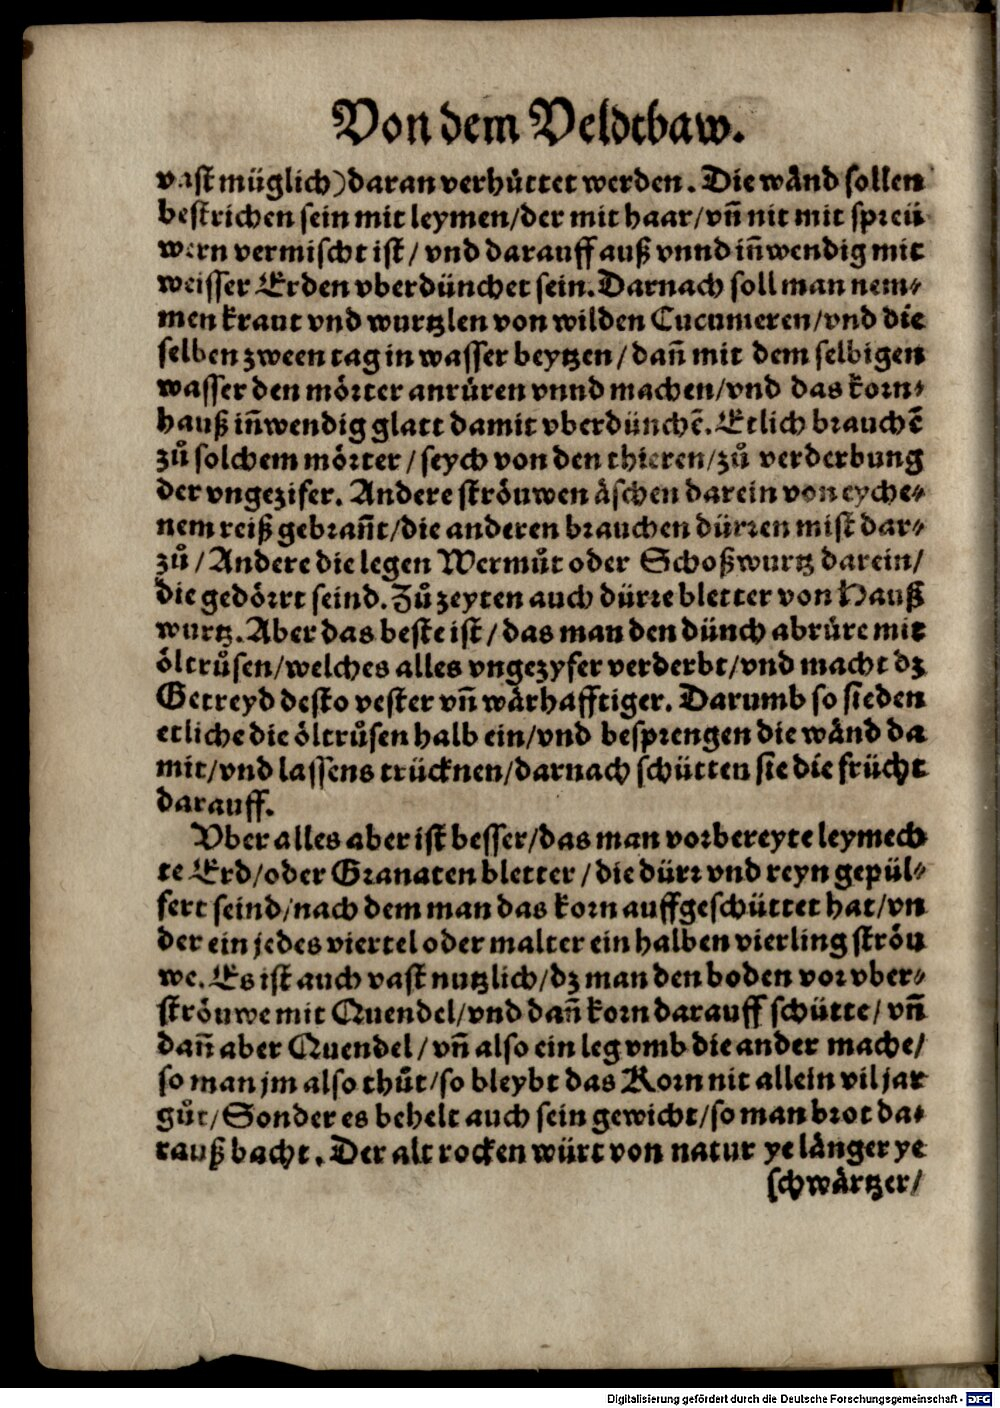 Von dem Veldtbaw.
vast müglich) daran verhüttet werden. Die wånd sollen
bestrichen sein mit leymen/der mit haar/vñ nit mit spreü
wern vermischt ist/ vnd darauff auß vnnd iñwendig mit
weisser Erden vberdünchet sein. Darnach soll man nem⸗
men kraut vnd wurtzlen von wilden Cucumeren/vnd die
selben zween tag in wasser beytzen/ dañ mit dem selbigen
wasser den mörter anrüren vnnd machen/vnd das korn⸗
hauß iñwendig glatt damit vberdünchẽ. Etlich brauchẽ
zů solchem mörter/ seych von den thieren/zů verderbung
der vngezifer. Andere ströuwen åschen darein von eyche⸗
nem reiß gebrañt/die anderen brauchen dürren mist dar⸗
zů/Andere die legen Wermůt oder Schoßwurtz darein/
die gedörrt seind. Zů zeyten auch dürre bletter von Hauß
wurtz. Aber das beste ist/ das man den dünch abrüre mit
öltrůsen/welches alles vngezyfer verderbt/vnd macht dz
Getreyd desto vester vñ wårhafftiger. Darumb so sieden
etliche die öltrůsen halb ein/vnd besprengen die wånd da
mit/vnd lassens trücknen/darnach schütten sie die frücht
darauff.
Vber alles aber ist besser/das man vorbereyte leymech
te Erd/oder Granaten bletter/die dürr vnd reyn gepül⸗
fert seind/nach dem man das korn auffgeschüttet hat/vn
der ein jedes viertel oder malter ein halben vierling ströu
we. Es ist auch vast nutzlich/dz man den boden vor vber⸗
ströuwe mit Quendel/vnd dañ korn darauff schütte/ vñ
dañ aber Quendel/ vñ also ein leg vmb die ander mache/
so man jm also thůt/so bleybt das Korn nit allein vil jar
gůt/Sonder es behelt auch sein gewicht/so man brot da⸗
rauß bacht. Der alt rocken würt von natur ye långer ye
schwårtzer/
Digitalisierung gefördert durch die Deutsche Forschungsgemeinschaft - DFG